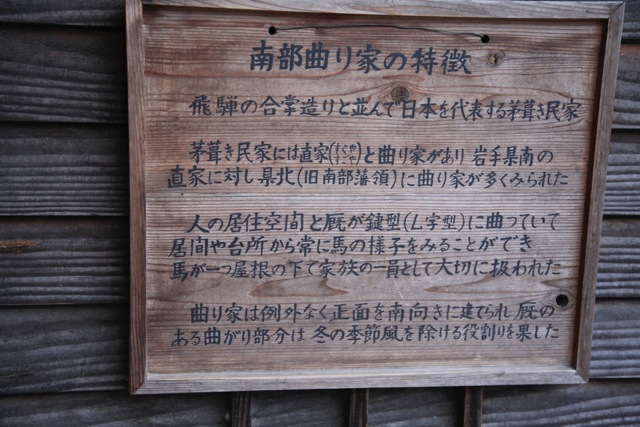 南部曲り家の特徴
飛騨の合掌造りと並んで日本を代表する茅葺き民家
茅葺き民家には直家(すぐや)と曲り家があり岩手県南の
直家に対し県北(旧南部藩領)に曲り家が多くみられた
人の居住空間と厩が鍵型(L字型)に曲っていて
居間や台所から常に馬の様子をみることができ
馬が一つ屋根の下で家族の一員として大切に扱われた
曲り家は例外なく正面を南向きに建てられ厩の
ある曲がり部分は冬の季節風を除ける役割りを果した